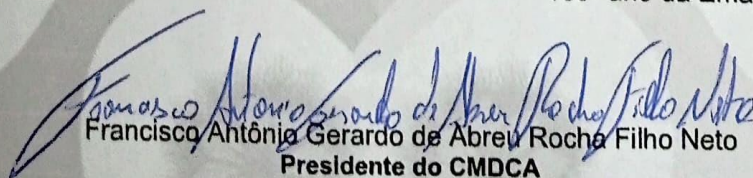 ano da Ema
Francisco Antônio Gerardo de Abreu Rocha Filho Neto
Francisco Antônio Gerardo de Abreu Rocha Filho Neto
Presidente do CMDCA